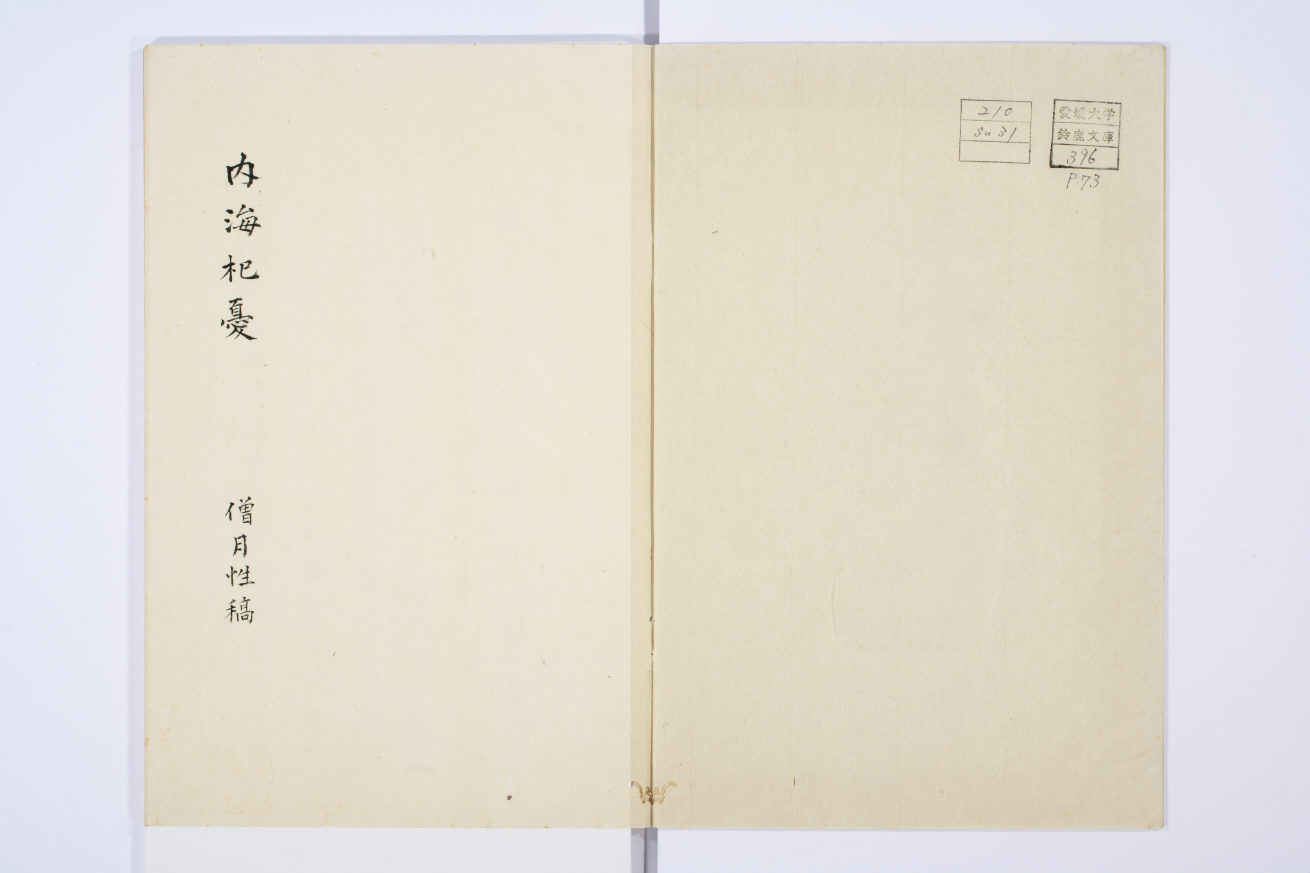 愛媛大学
鈴鹿文庫
396
P73
210
Su31
内海杞憂
僧月性稿